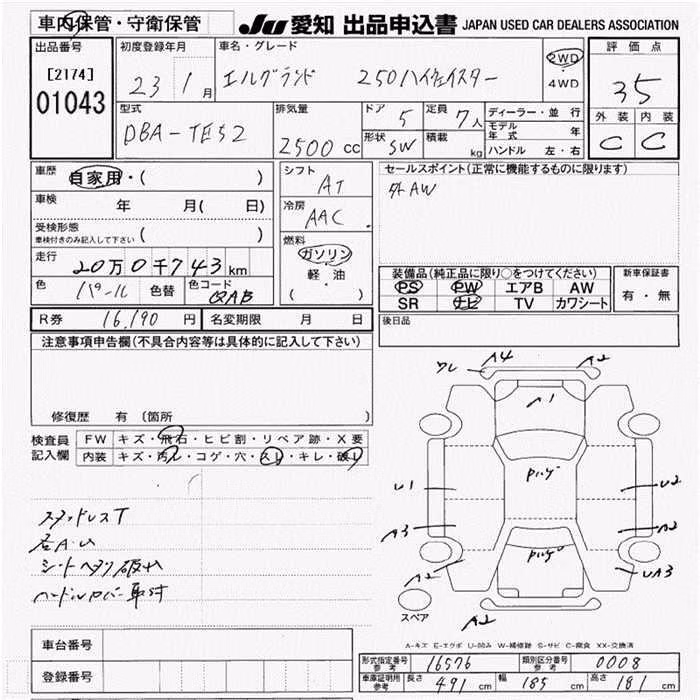 車内保管・守衛保管 JU 愛知 出品申込書 JAPAN USED CAR DEALERS ASSOCIATION
出品番号 初度登録年月 車名・グレード 評価点
[2174] 23 1月 エルグランド 250ハイウェイスター 2WD・4WD 35
01043 型式 排気量 ドア 5 定員 7人 ディーラー・並行 外装 内装
DBA-TE52 2500cc 形状 SW 積載 kg モデル年式 年 C C
ハンドル 左・右
車歴 自家用・( ) シフト AT セールスポイント(正常に機能するものに限ります)
車検 年 月( 日) 冷房 AAC 外AW
受検形態 ( )
車検付きのみ記入して下さい
燃料 ガソリン 軽油 ( ・ )
走行 20万0千743km
装備品(純正品に限り○をつけてください) 新車保証書
色 パール 色替 色コード QAB PS PW エアB AW 有・無
SR ナビ TV カワシート
R券 16,190円 名変期限 月 日 後日品
注意事項申告欄(不具合内容等は具体的に記入して下さい)
修復歴 有 (箇所 )
検査員記入欄 FW キズ・飛石・ヒビ割・リペア跡・X要
内装 キズ・汚レ・コゲ・穴・スレ・キレ・破レ
スタッドレスT
シートヘタリ破れ
ワレ A4 A2
A1
U1 U2
A3 A2
A2 UA3
スペア A2
A-キズ E-エクボ U-凹み W-補修跡 S-サビ C-腐食 XX-交換済
車台番号
登録番号
形式指定番号 参考 16576 類別区分番号 参考 0008
車庫証明用 参考 長さ 491cm 幅 185cm 高さ 181cm